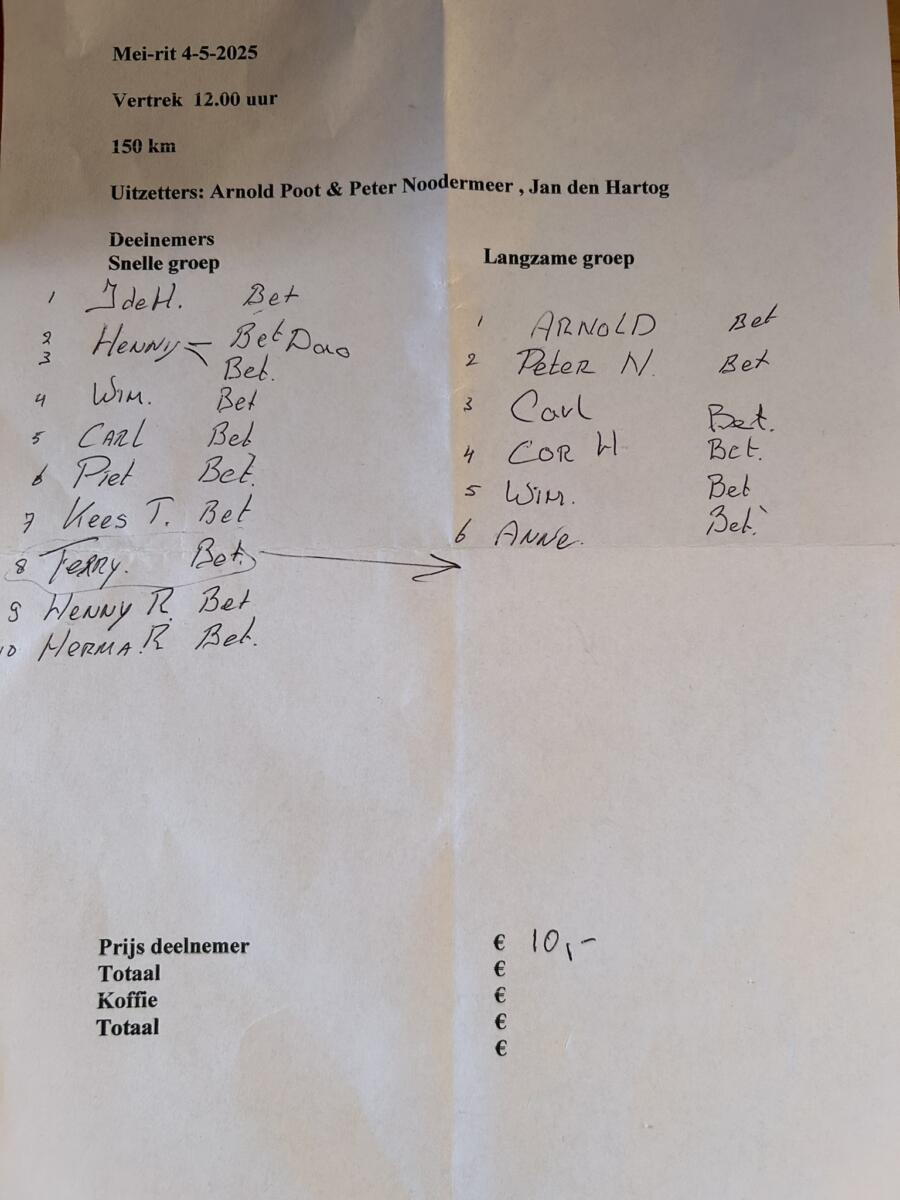 Mei-rit 4-5-2025
Vertrek 12.00 uur
150 km
Uitzetters: Arnold Poot & Peter Noodermeer , Jan den Hartog
Deelnemers
Snelle groep
1 JdeH. Bet
2 HENNY - Bet
3 Bet.
4 Wim. Bet
5 CARL Bet
6 Piet Bet.
7 Kees T. Bet
8 Terry. Bet.
9 HENNY R. Bet
10 HERMA.R Bet.
Langzame groep
1 ARNOLD Bet
2 Peter N. Bet
3 Carl Bet.
4 COR H Bet.
5 Wim. Bet
6 ANNE. Bet.
Prijs deelnemer € 10,-
Totaal €
Koffie €
Totaal €
€